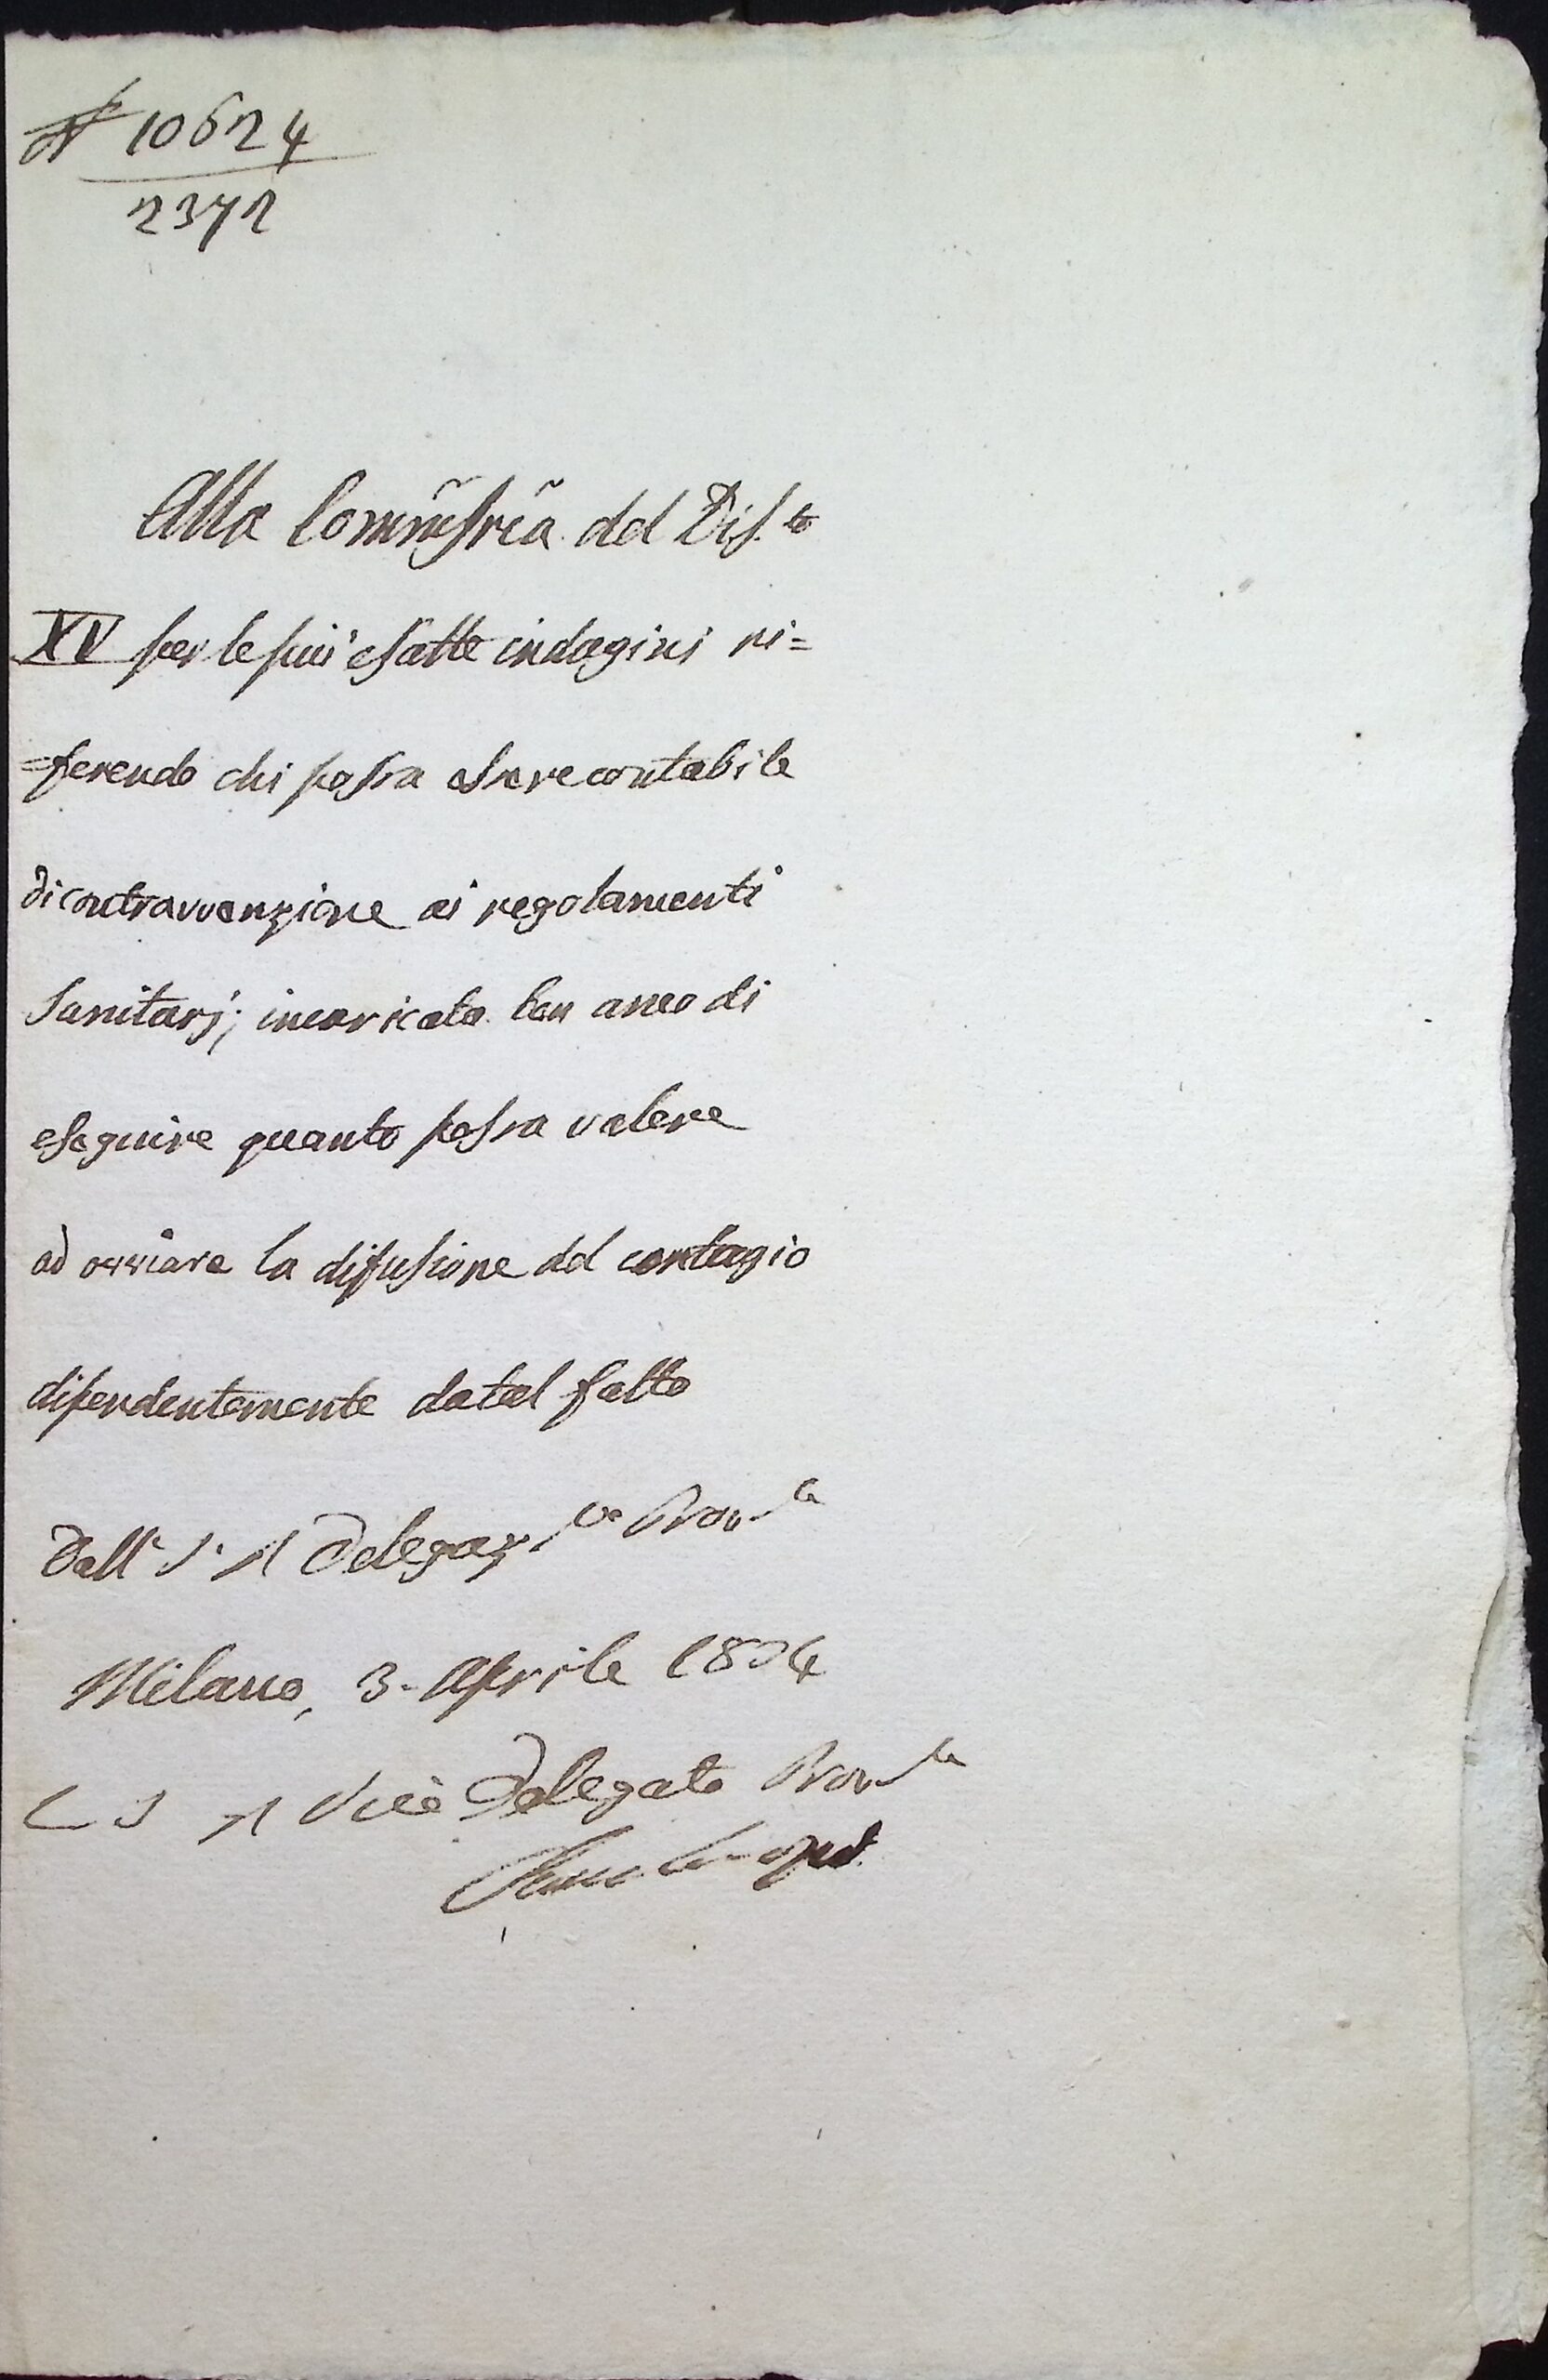 N° 10624
2372
Alla Commissria del Dis.to
XV per le più esatte indagini ri=
=ferendo chi possa essere contabile
di contravvenzione ai regolamenti
Sanitarj; incaricata ben anco di
eseguire quanto possa valere
ad ovviare la difusione del contagio
dipendentemente da tal fatto
Dall' I. R. Delegaz.ne Prov.le
Milano, 3. Aprile 1834
L I R Vice Delegato Prov.le